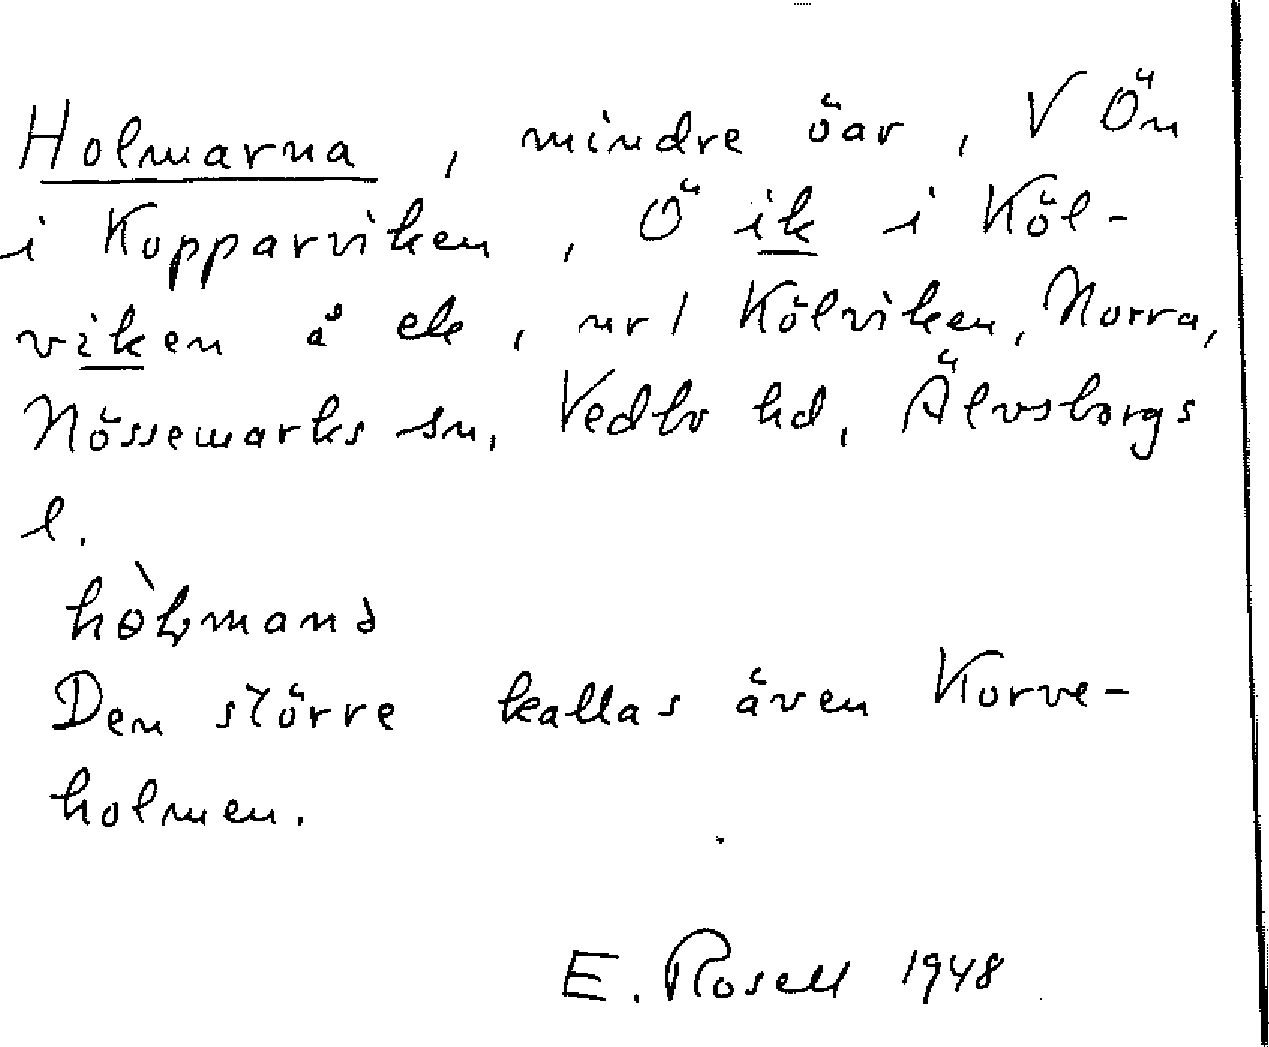 Holmarna, mindre öar, V Ön
i Kopparviken, Ö ik i Köl-
viken å ek, nr 1 Kölviken, Norra,
Nössemarks sn, Vedbo hd, Älvsborgs
l.
Den större kallas även Korve-
holmen.
E. Rosell 1948